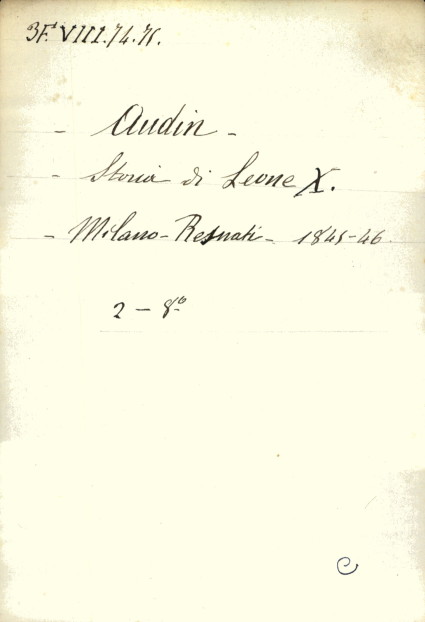 3F.ª VIII.74.75.
- Audin -
- Storia di Leone X.
- Milano - Resnati - 1845-46.
2 - 8º
C